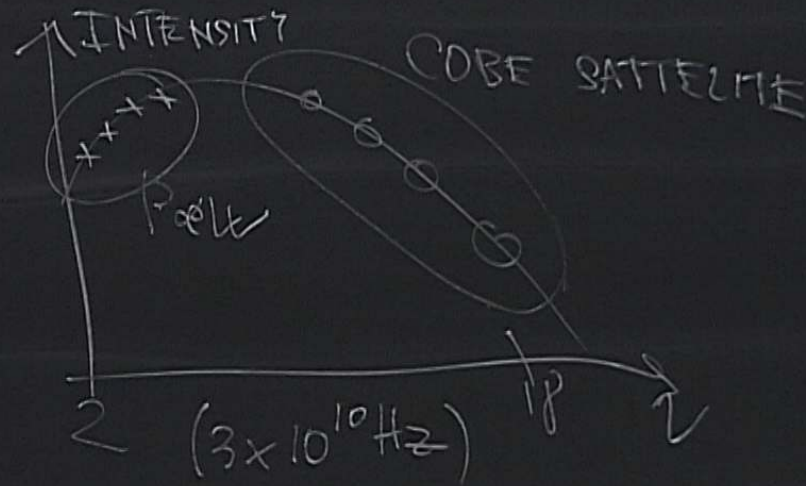 INTENSITY
COBE SATTELITE
2
(3×10¹⁰Hz)
18
ν